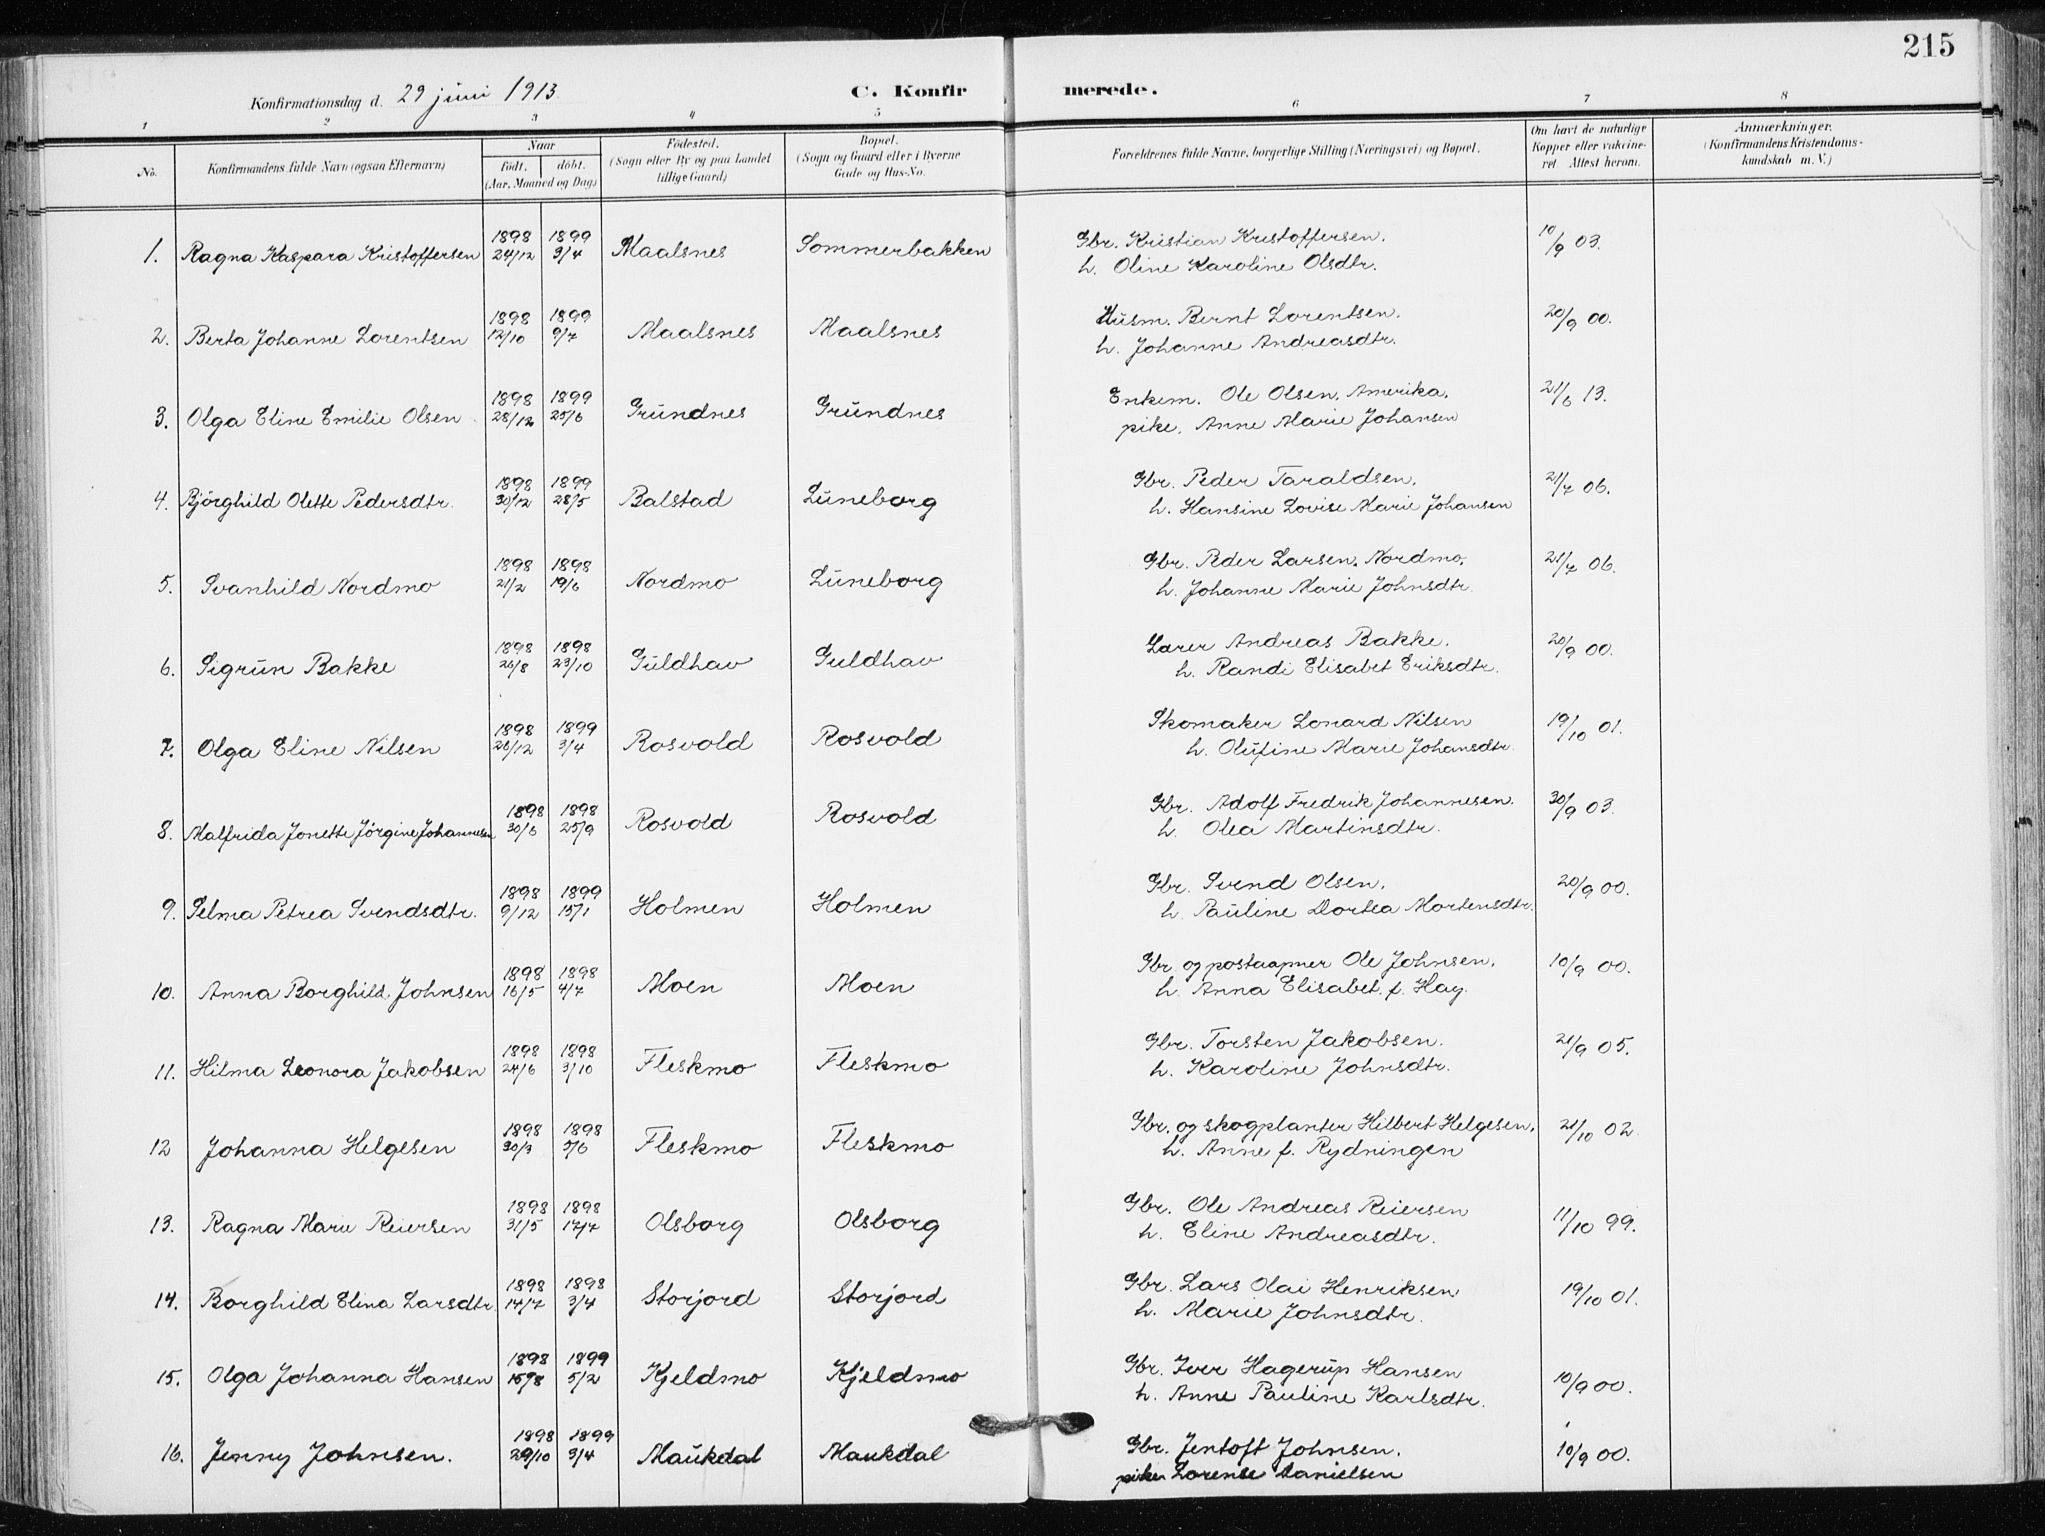 215
Konfirmationsdag d. 29 juni 1913 C. Konfirmerede.
1 2 3 4 5 6 7 8
No. Konfirmandens fulde Navn (ogsaa Efternavn) Naar født. døbt. (Aar, Maaned og Dag) Fødested. (Sogn eller By og paa Landet tillige Gaard) Bopæl. (Sogn og Gaard eller i Byerne Gade og Hus-No. Forældrenes fulde Navne, borgerlige Stilling (Næringsvei) og Bopæl. Om havt de naturlige Kopper eller vaccineret Attest herom. Anmærkninger. (Konfirmandens Kristendomskundskab m. V.)
1. Ragna Kaspara Kristoffersen 1898 24/12 1899 3/4 Maalsnes Sommerbakken Gbr. Kristian Kristoffersen. 10/9 03.
h. Oline Karoline Olsdtr.
2. Berta Johanne Lorentsen 1898 12/10 1899 9/7 Maalsnes Maalsnes Husm. Bernt Lorentsen. 20/9 00.
h. Johanne Andreasdtr.
3. Olga Eline Emilie Olsen 1898 28/12 1899 25/6 Grundnes Grundnes Enkem. Ole Olsen, Amerika. 21/6 13.
pike, Anne Marie Johansen
4. Bjørghild Olette Pedersdtr. 1898 30/12 1899 28/5 Balstad Luneborg Gbr. Peder Taraldsen. 21/7 06.
h. Hansine Lovise Marie Johansen
5. Svanhild Nordmo 1898 21/2 1898 19/6 Nordmo Luneborg Gbr. Peder Larsen, Nordmo. 21/7 06.
h. Johanne Marie Johnsdtr.
6. Sigrun Bakke 1898 26/8 1898 23/10 Guldhav Guldhav Lærer Andreas Bakke. 20/9 00.
h. Randi Elisabet Eriksdtr.
7. Olga Eline Nilsen 1898 28/12 1899 3/4 Rosvold Rosvold Skomaker Lonard Nilsen 19/10 01.
h. Olufine Marie Johansdtr.
8. Malfrida Jonette Jørgine Johannesen 1898 30/6 1898 25/9 Rosvold Rosvold Gbr. Adolf Fredrik Johannesen. 30/9 03.
h. Olea Martinsdtr.
9. Selma Petrea Svendsdtr. 1898 9/12 1899 15/1 Holmen Holmen Gbr. Svend Olsen. 20/9 00.
h. Pauline Dortea Mortensdtr.
10. Anna Borghild Johnsen 1898 16/5 1898 4/7 Moen Moen Gbr. og postaapner Ole Johnsen. 10/9 00.
h. Anna Elisabet. f. Hay.
11. Hilma Leonora Jakobsen 1898 24/6 1898 3/10 Fleskmo Fleskmo Gbr. Torsten Jakobsen. 21/9 05.
h. Karoline Johnsdtr.
12 Johanna Helgesen 1898 30/3 1898 5/6 Fleskmo Fleskmo Gbr. og skogplanter Hilbert Helgesen. 21/10 02.
h. Anne f. Rydningen
13. Ragna Marie Reiersen 1898 31/5 1898 17/7 Olsborg Olsborg Gbr. Ole Andreas Reiersen 11/10 99.
h. Eline Andreasdtr.
14. Borghild Elina Larsdtr 1898 14/7 1898 3/4 Storjord Storjord Gbr. Lars Olai Henriksen 19/10 01.
h. Marie Johnsdtr.
15. Olga Johanna Hansen 1898 15/8 1899 5/2 Kjeldmo Kjeldmo Gbr. Iver Hagerup Hansen 10/9 00.
h. Anne Pauline Karlsdtr.
16. Jenny Johnsen. 1898 29/10 1899 3/4 Maukdal Maukdal Gbr. Jentoft Johnsen. 10/9 00.
piken Lorense Danielsen